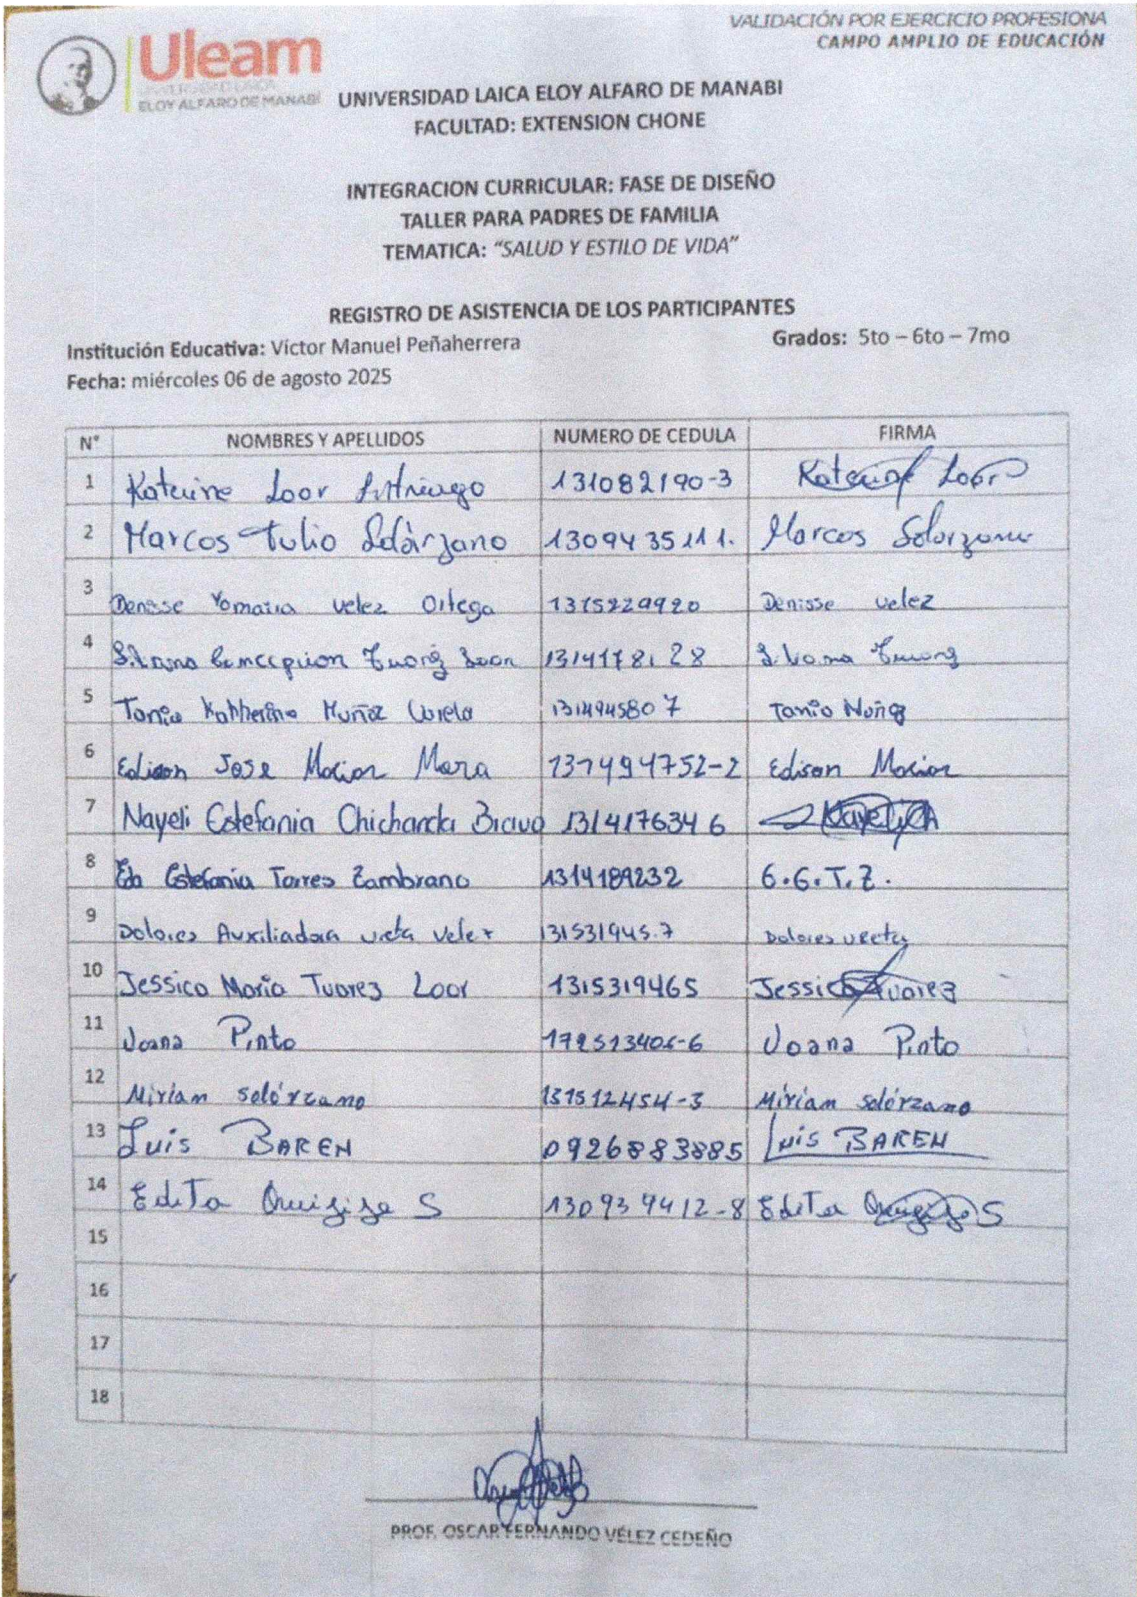 VALIDACIÓN POR EJERCICIO PROFESIONA
CAMPO AMPLIO DE EDUCACIÓN
Uleam
UNIVERSIDAD LAICA
ELOY ALFARO DE MANABÍ
UNIVERSIDAD LAICA ELOY ALFARO DE MANABI
FACULTAD: EXTENSION CHONE
INTEGRACION CURRICULAR: FASE DE DISEÑO
TALLER PARA PADRES DE FAMILIA
TEMATICA: “SALUD Y ESTILO DE VIDA”
REGISTRO DE ASISTENCIA DE LOS PARTICIPANTES
Institución Educativa: Víctor Manuel Peñaherrera Grados: 5to – 6to – 7mo
Fecha: miércoles 06 de agosto 2025
N° NOMBRES Y APELLIDOS NUMERO DE CEDULA FIRMA
1 Katerine Loor 131082190-3 Loor
2 Marcos Tulio Solórzano 1309435111. Marcos Solorzano
3 Denisse Yomaira Velez Ortega 1315229920 Denisse Velez
4 Tuarez Loor
5 Tania Katherine Muñoz 131494580 7 Tania Muñoz
6 Edison Jose Macias Mera 131494752-2 Edison Macias
7 Nayeli Estefania Chichanda Bravo 1314176346
8 Estefania Torres Zambrano 1314189232 G.G.T.Z.
9 Dolores Auxiliadora Velez 131531945.7 Dolores
10 Jessica Maria Tuarez Loor 1315319465 Jessica Tuarez
11 Joana Pinto Joana Pinto
12 Miriam Solórzano 131512454-3 Miriam Solórzano
13 Luis BAREN 0926883885 Luis BAREN
14 Edita S 130939412-8 Edita S
15
16
17
18
PROF. OSCAR FERNANDO VÉLEZ CEDEÑO